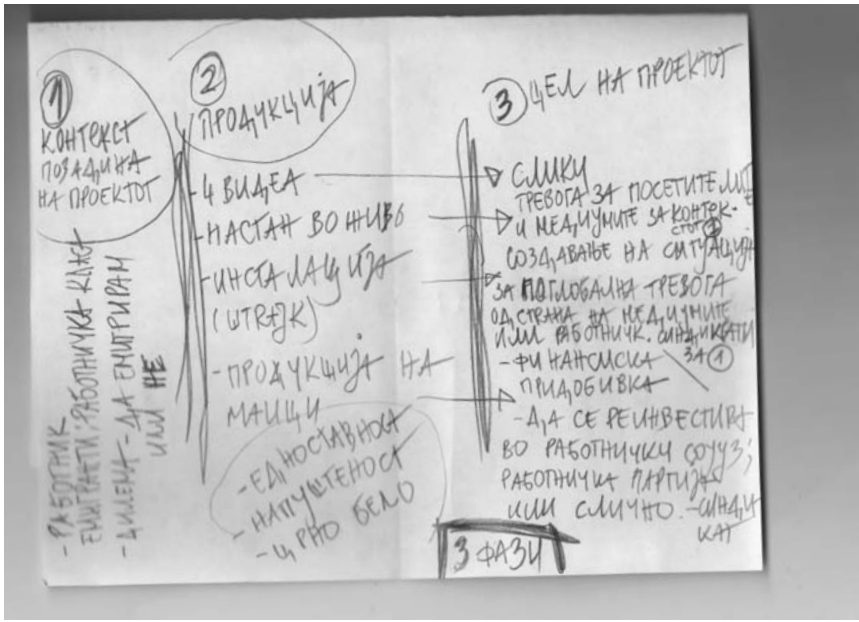 1
КОНТЕКСТ
ПОЗАДИНА
НА ПРОЕКТОТ
- РАБОТНИК
ЕМИГРАНТИ: РАБОТНИЧКА КЛАСА
- ДИЛЕМА - ДА ЕМИГРИРАМ
ИЛИ НЕ
2
ПРОДУКЦИЈА
- 4 ВИДЕА
- НАСТАН ВО ЖИВО
- ИНСТАЛАЦИЈА
(ШТRAJK)
- ПРОДУКЦИЈА НА
МАИЦИ
- ЕДНОСТАВНОСТ
- НАПУШТЕНОСТ
- ЦРНО БЕЛО
3 ЦЕЛ НА ПРОЕКТОТ
СЛИКИ
ТРЕВОГА ЗА ПОСЕТИТЕЛИТЕ
И МЕДИУМИТЕ ЗА КОНТЕК-
СТОТ 1
СОЗДАВАЊЕ НА СИТУАЦИЈА
ЗА ПОГЛОБАЛНА ТРЕВОГА
ОД СТРАНА НА МЕДИУМИТЕ
ИЛИ РАБОТНИЧК. СИНДИКАТИ
ЗА 1
- ФИНАНСИСКА
ПРИДОБИВКА
- ДА СЕ РЕИНВЕСТИРА
ВО РАБОТНИЧКИ СОЈУЗ;
РАБОТНИЧКА ПАРТИЈА
ИЛИ СЛИЧНО. - СИНДИ
КАТ
3 ФАЗИ